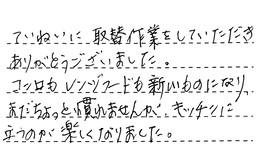 ていねいに 取替作業をしていただき
ありがとうございました。
コンロも レンジフードも新しいものになり、
まだちょっと慣れませんが、キッチンに
立つのが 楽しくなりました。